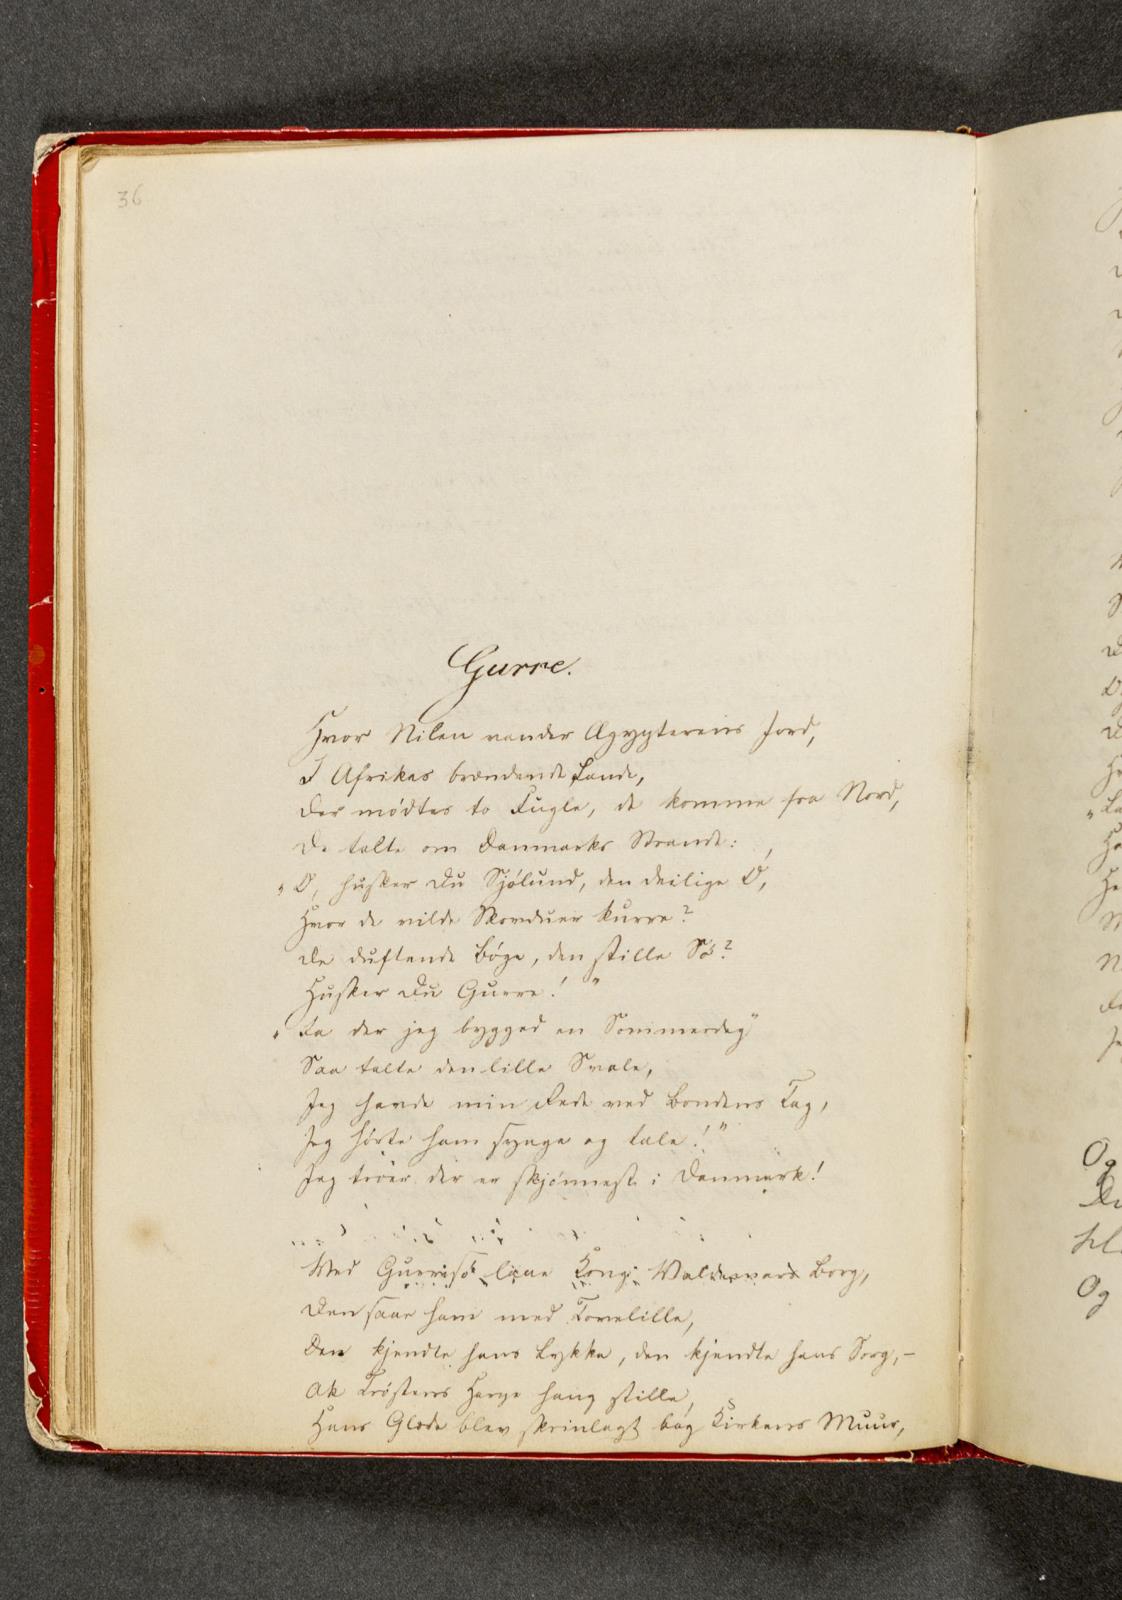 36
Gurre.
Hvor Nilen vander Ægypterens Jord,
I Afrikas brændende Lande,
Der mødtes to Fugle, de komme fra Nord,
De talte om Danmarks Strande:
„O, husker Du Sjølund, den deilige Ø,
Hvor de vilde Skovduer kurre?
De duftende Bøge, den stille Sø?
Husker Du Gurre!"
„Ja der jeg bygged en Sommerdag"
Saa talte den lille Svale,
Jeg havde min Rede ved Bondens Tag,
Jeg hørte ham synge og tale!"
Jeg troer der er skjønnest i Danmark!
Ved Gurresø laae Kong Waldemars Borg,
Den saae ham med Tovelille,
Den kjendte hans Lykke, den kjendte hans Sorg,—
Ak Trøstens Harpe hang stille,
Hans Glæde blev skrinlagt bag Kirkens Muur,